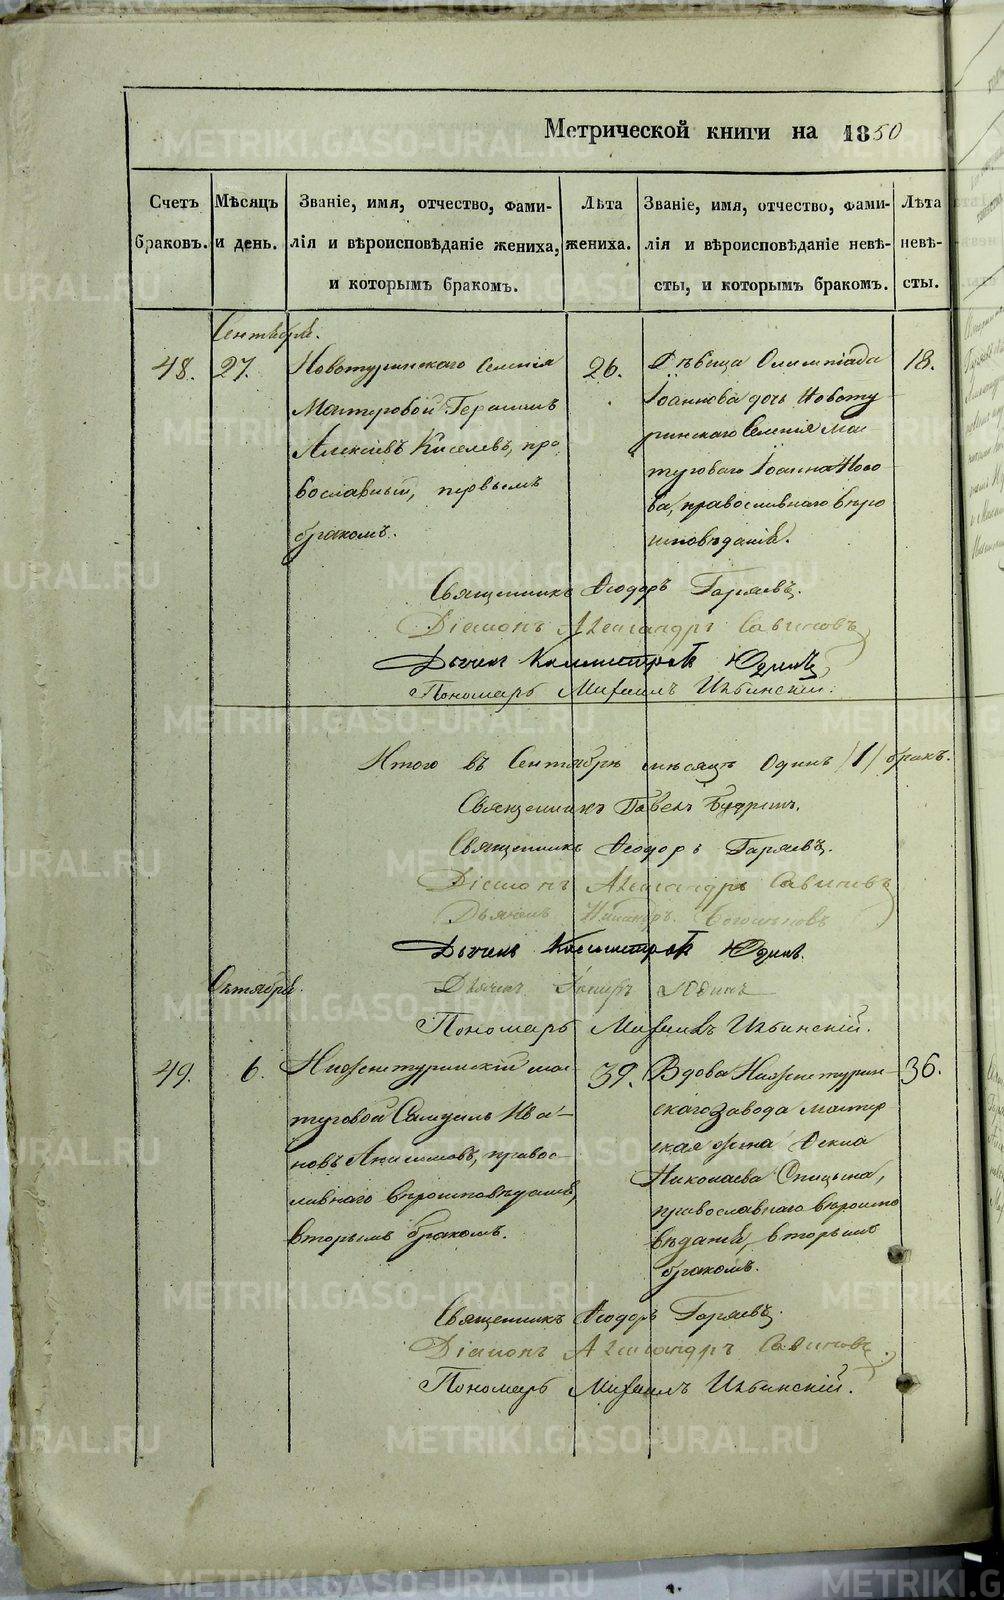 Метрической книги на 1850
Счетъ браковъ.
Мѣсяцъ и день.
Званіе, имя, отчество, фами-
лія и вѣроисповѣданіе жениха,
и которымъ бракомъ.
Лѣта жениха.
Званіе, имя, отчество, фами-
лія и вѣроисповѣданіе невѣ-
сты, и которымъ бракомъ.
Лѣта невѣ-
сты.
Сентября.
48.
27.
Новотуринскаго Селенія
Мастеровой Герасимъ
Алексѣевъ Киселевъ, пра
вославный, первымъ
бракомъ.
26.
Дѣвица Олимпіада
Іоаннова дочь Новоту
ринскаго Селенія мас
туроваго Іоанна
православнаго вѣро
исповѣданія.
18.
Священникъ Ѳеодоръ Гаряевъ.
Діаконъ Александръ Савиновъ
Дьячекъ Каллистратъ Юдинъ
Пономарь Михаилъ Ильинскій.
Итого въ Сентябрѣ мѣсяцѣ Одинъ /1/ бракъ.
Священникъ Павелъ
Священникъ Ѳеодоръ Гаряевъ.
Діаконъ Александръ Савиновъ
Дьячекъ
Дьячекъ Каллистратъ Юдинъ.
Октября.
Дьячекъ Юдинъ
Пономарь Михаилъ Ильинскій.
49.
6.
Нижнетуринскій мас
туровой Самуилъ Ива-
новъ Анисимовъ, правос-
лавнаго вѣроисповѣданія,
вторымъ бракомъ.
39.
Вдова Нижнетурин-
скаго завода мастер
ская жена Ѳекла
Николаева Спицына,
православнаго вѣроиспо
вѣданія, вторымъ
бракомъ.
36.
Священникъ Ѳеодоръ Гаряевъ.
Діаконъ Александръ Савиновъ.
Пономарь Михаилъ Ильинскій.
METRIKI.GASO-URAL.RU